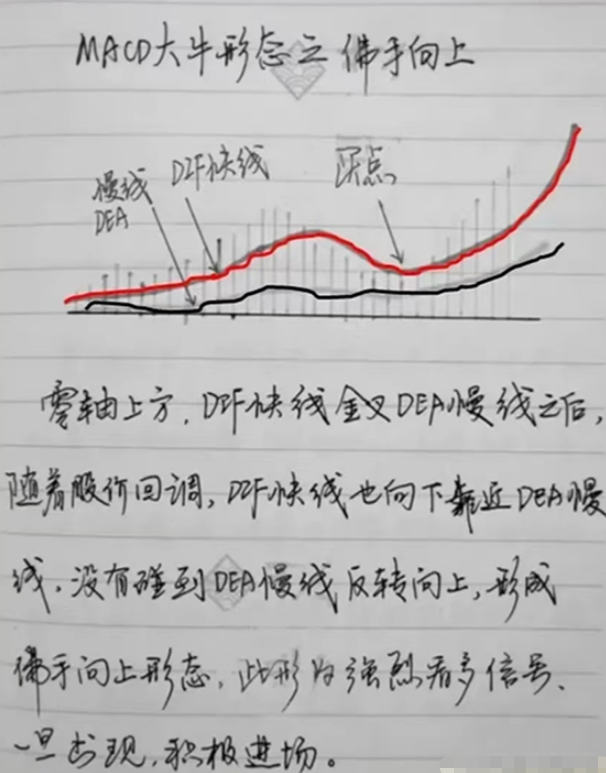 MACD大牛形态之佛手向上
慢线 DIF快线 买点
DEA
零轴上方,DIF快线金叉DEA慢线之后,
随着股价回调,DIF快线也向下靠近DEA慢
线,没有碰到DEA慢线反转向上,形成
佛手向上形态,此形为强烈看多信号、
一旦出现,积极进场。